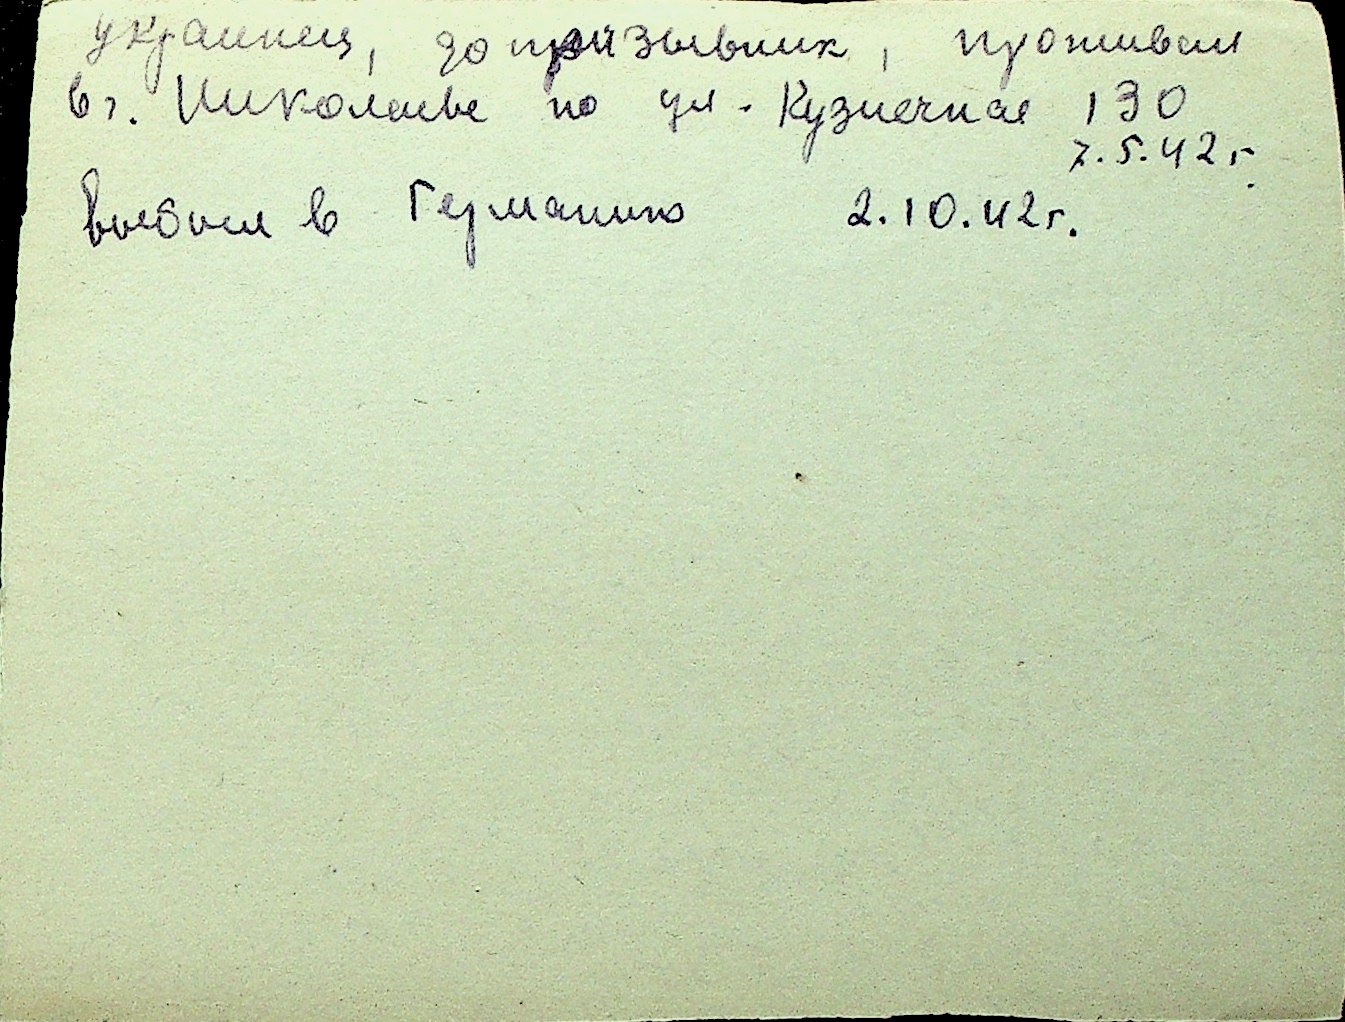 украинец, допризывник, проживал
в г. Николаеве по ул. Кузнечная 130
7.5.42 г.
Выбыл в Германию 2.10.42 г.